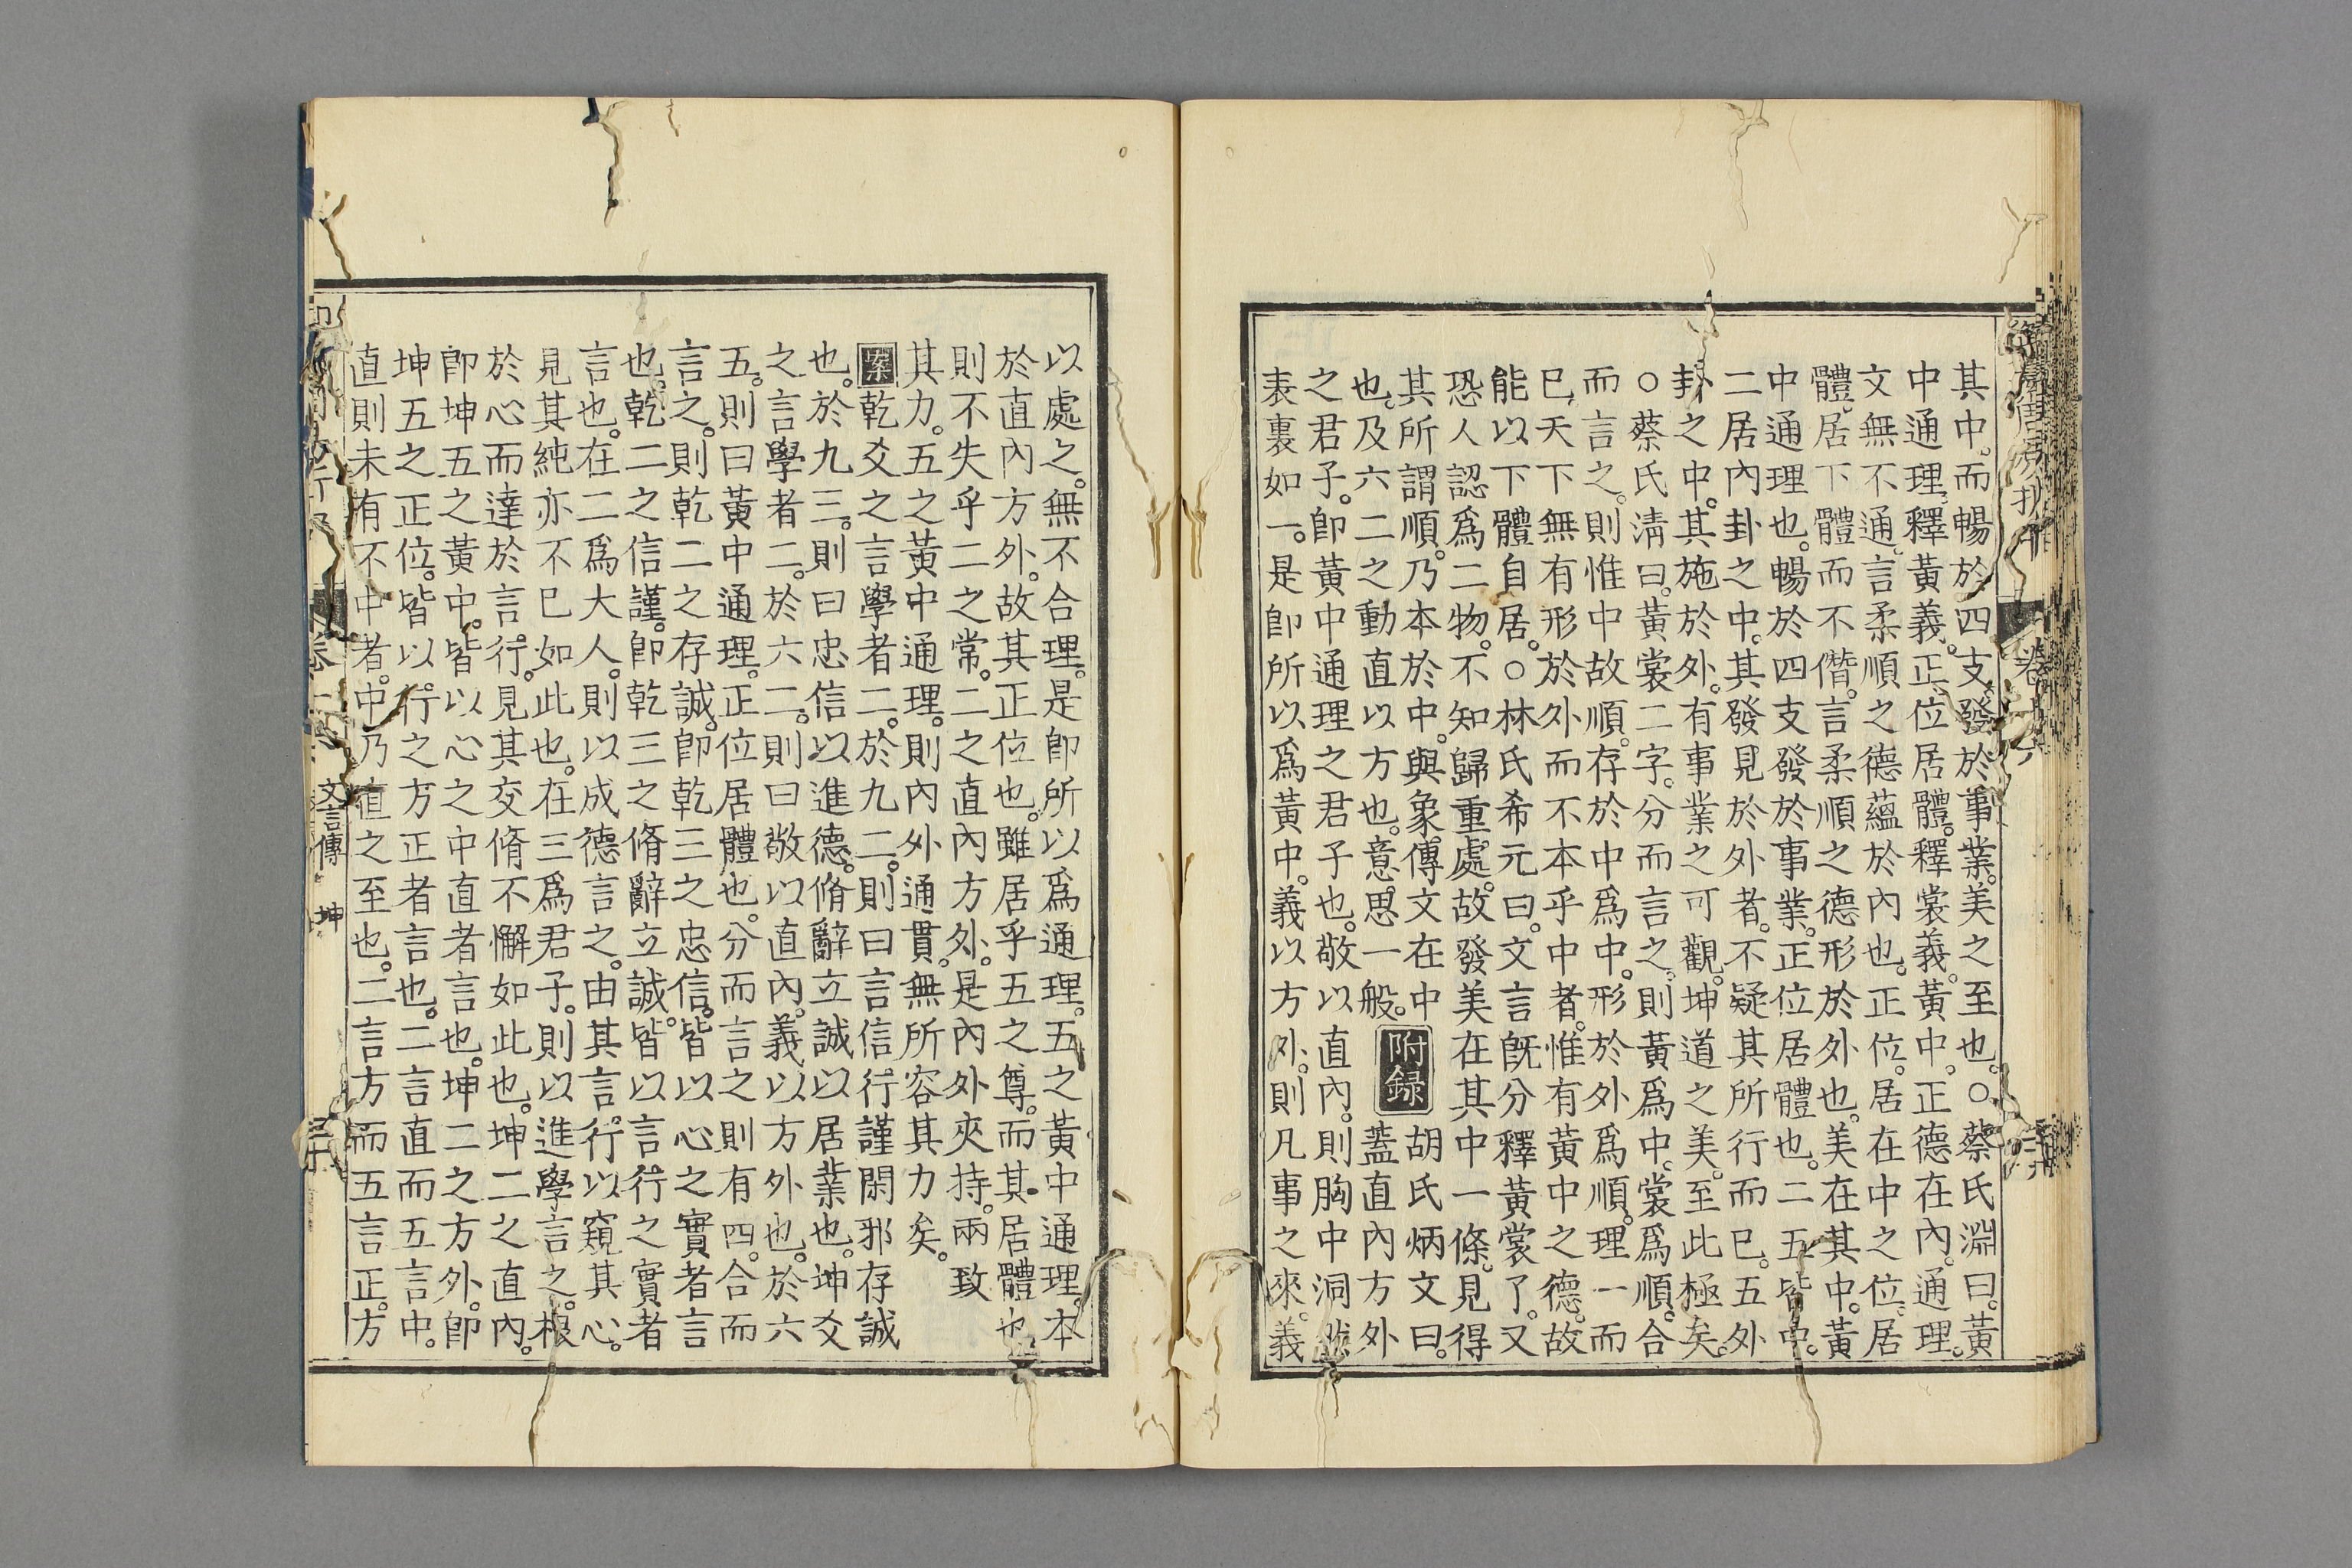 其中。而暢於四支。發於事業。美之至也。○蔡氏淵曰。黃
中通理。釋黃義。正位居體。釋裳義。黃中。正德在內。通理。
文無不通。言柔順之德蘊於內也。正位。居在中之位。居
體。居下體而不僭。言柔順之德形於外也。美在其中。黃
中通理也。暢於四支發於事業。正位居體也。二五皆中。
二居內卦之中。其發見於外者。不疑其所行而已。五外
卦之中。其施於外。有事業之可觀。坤道之美。至此極矣。
○蔡氏淸曰。黃裳二字。分而言之。則黃爲中。裳爲順。合
而言之。則惟中故順。存於中爲中。形於外爲順。理一而
已。天下無有形於外而不本乎中者。惟有黃中之德。故
能以下體自居。○林氏希元曰。文言旣分釋黃裳了。又
恐人認爲二物。不知歸重處。故發美在其中一條。見得
其所謂順。乃本於中。與象傳文在中
也。及六二之動直以方也。意思一般。附錄胡氏炳文曰。蓋直內方外
之君子。卽黃中通理之君子也。敬以直內。則胸中洞然
表裏如一。是卽所以爲黃中。義以方外。則凡事之來。義
以處之。無不合理。是卽所以爲通理。五之黃中通理。本
於直內方外。故其正位也。雖居乎五之尊。而其居體也
則不失乎二之常。二之直內方外。是內外夾持。兩致
其力。五之黃中通理。則內外通貫。無所容其力矣。
案乾爻之言學者二。於九二。則曰言信行謹閑邪存誠
也。於九三。則曰忠信以進德。脩辭立誠以居業也。坤爻
之言學者二。於六二。則曰敬以直內。義以方外也。於六
五。則曰黃中通理。正位居體也。分而言之則有四。合而
言之。則乾二之存誠。卽乾三之忠信。皆以心之實者言
也。乾二之信謹。卽乾三之脩辭立誠。皆以言行之實者
言也。在二爲大人。則以成德言之。由其言行以窺其心。
見其純亦不已如此也。在三爲君子。則以進學言之。根
於心而達於言行。見其交脩不懈如此也。坤二之直內。
卽坤五之黃中。皆以心之中直者言也。坤二之方外。卽
坤五之正位。皆以行之方正者言也。二言直而五言中。
直則未有不中者。中乃直之至也。二言方而五言正。方
文言傳 坤